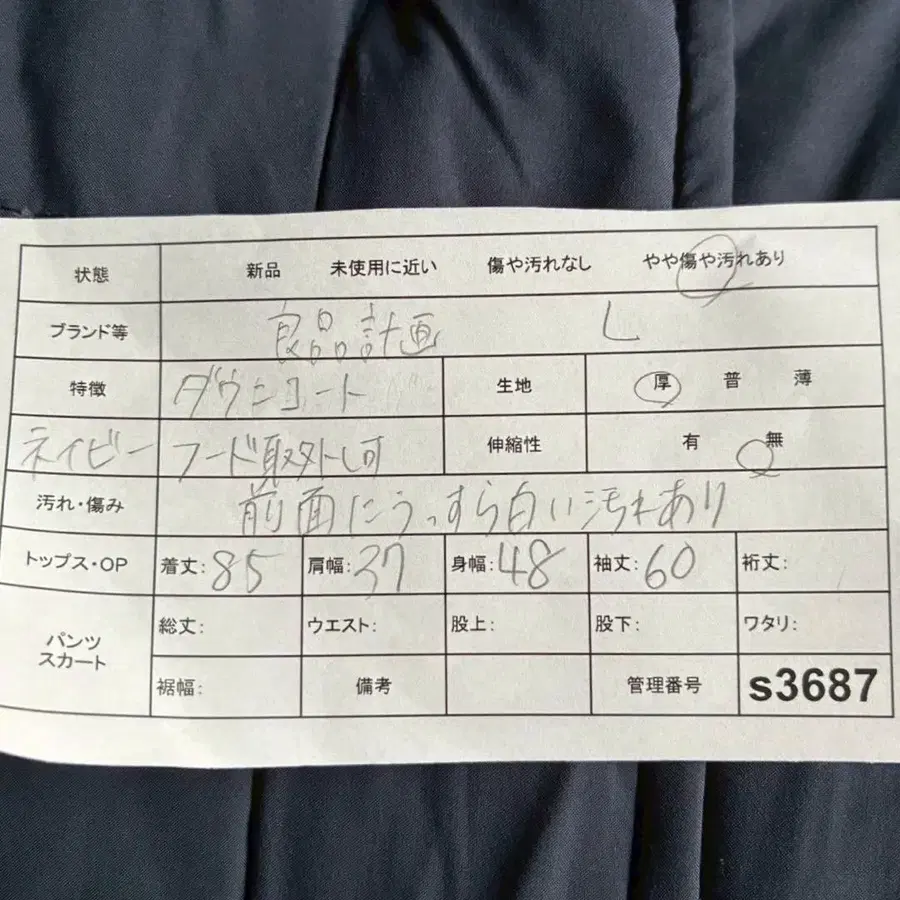 状態 新品 未使用に近い 傷や汚れなし やや傷や汚れあり
ブランド等 良品計画 L
特徴 ダウンコート 生地 厚 普 薄
ネイビー フード取外し可 伸縮性 有 無
汚れ・傷み 前面にうっすら白い汚れあり
トップス・OP 着丈:85 肩幅:37 身幅:48 袖丈:60 裄丈:
パンツ スカート 総丈: ウエスト: 股上: 股下: ワタリ:
裾幅: 備考 管理番号 s3687